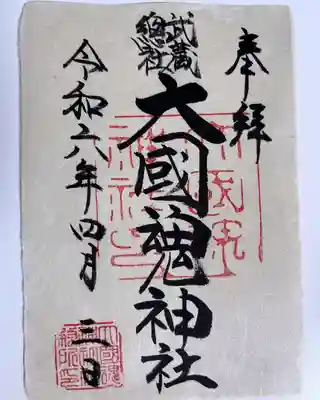 奉拝
武蔵
總社
大國魂神社
令和六年四月三日